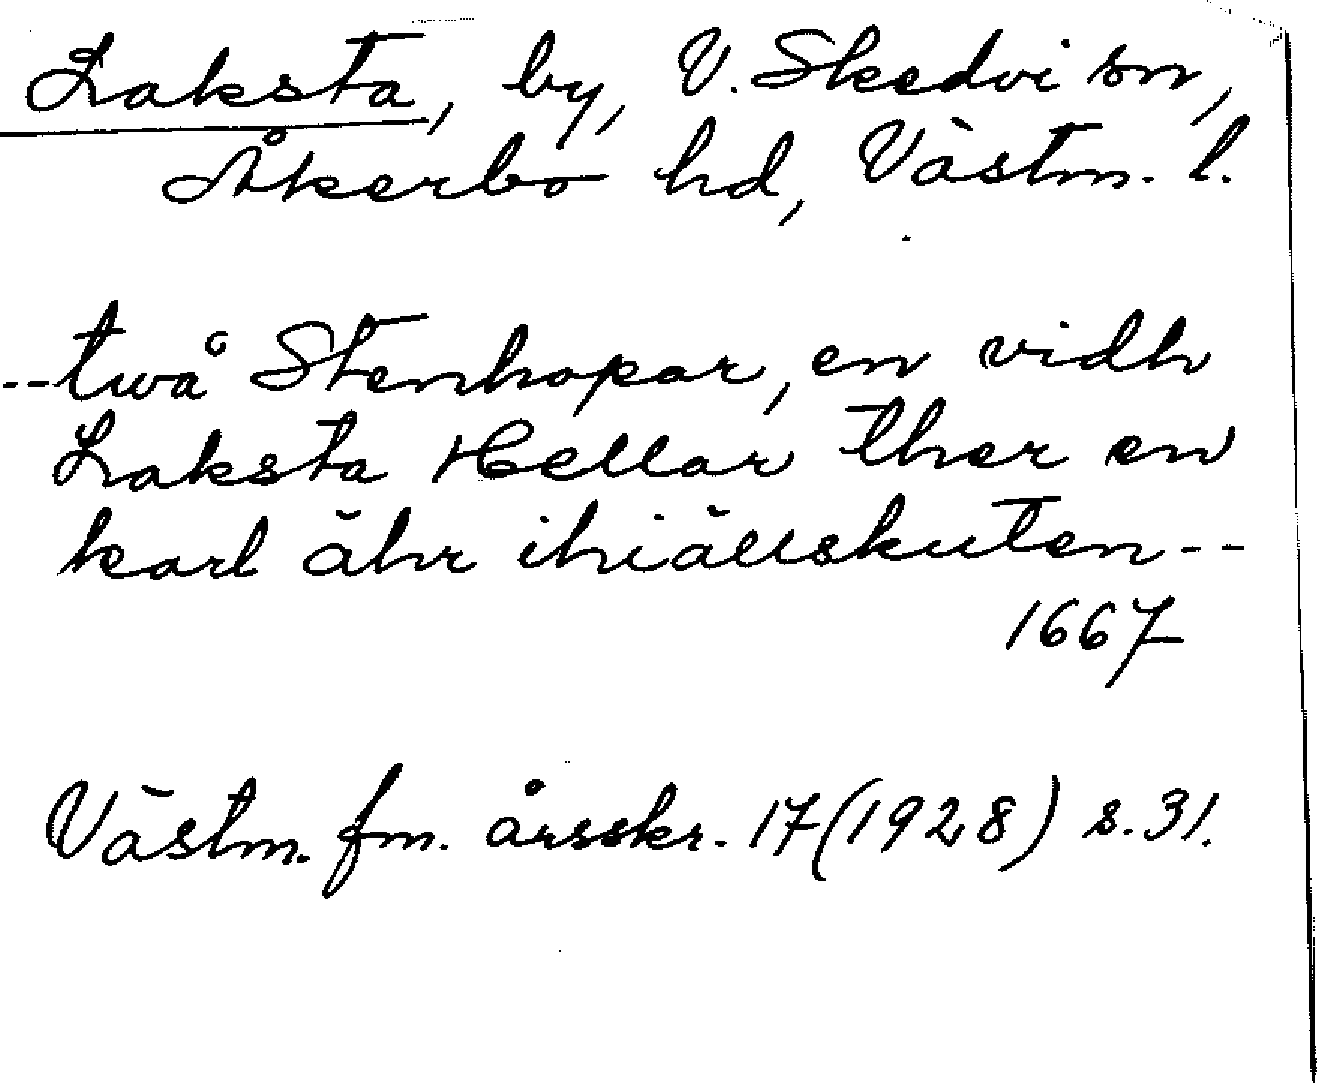 Laksta, by, V. Skedvi sn,
Åkerbo hd, Västm. l.
--twå Stenhopar, en vidh
Laksta Hellar ther en
karl ähr ihiällskuten--
1667
Västm. fm. årsskr. 17(1928) s.31.